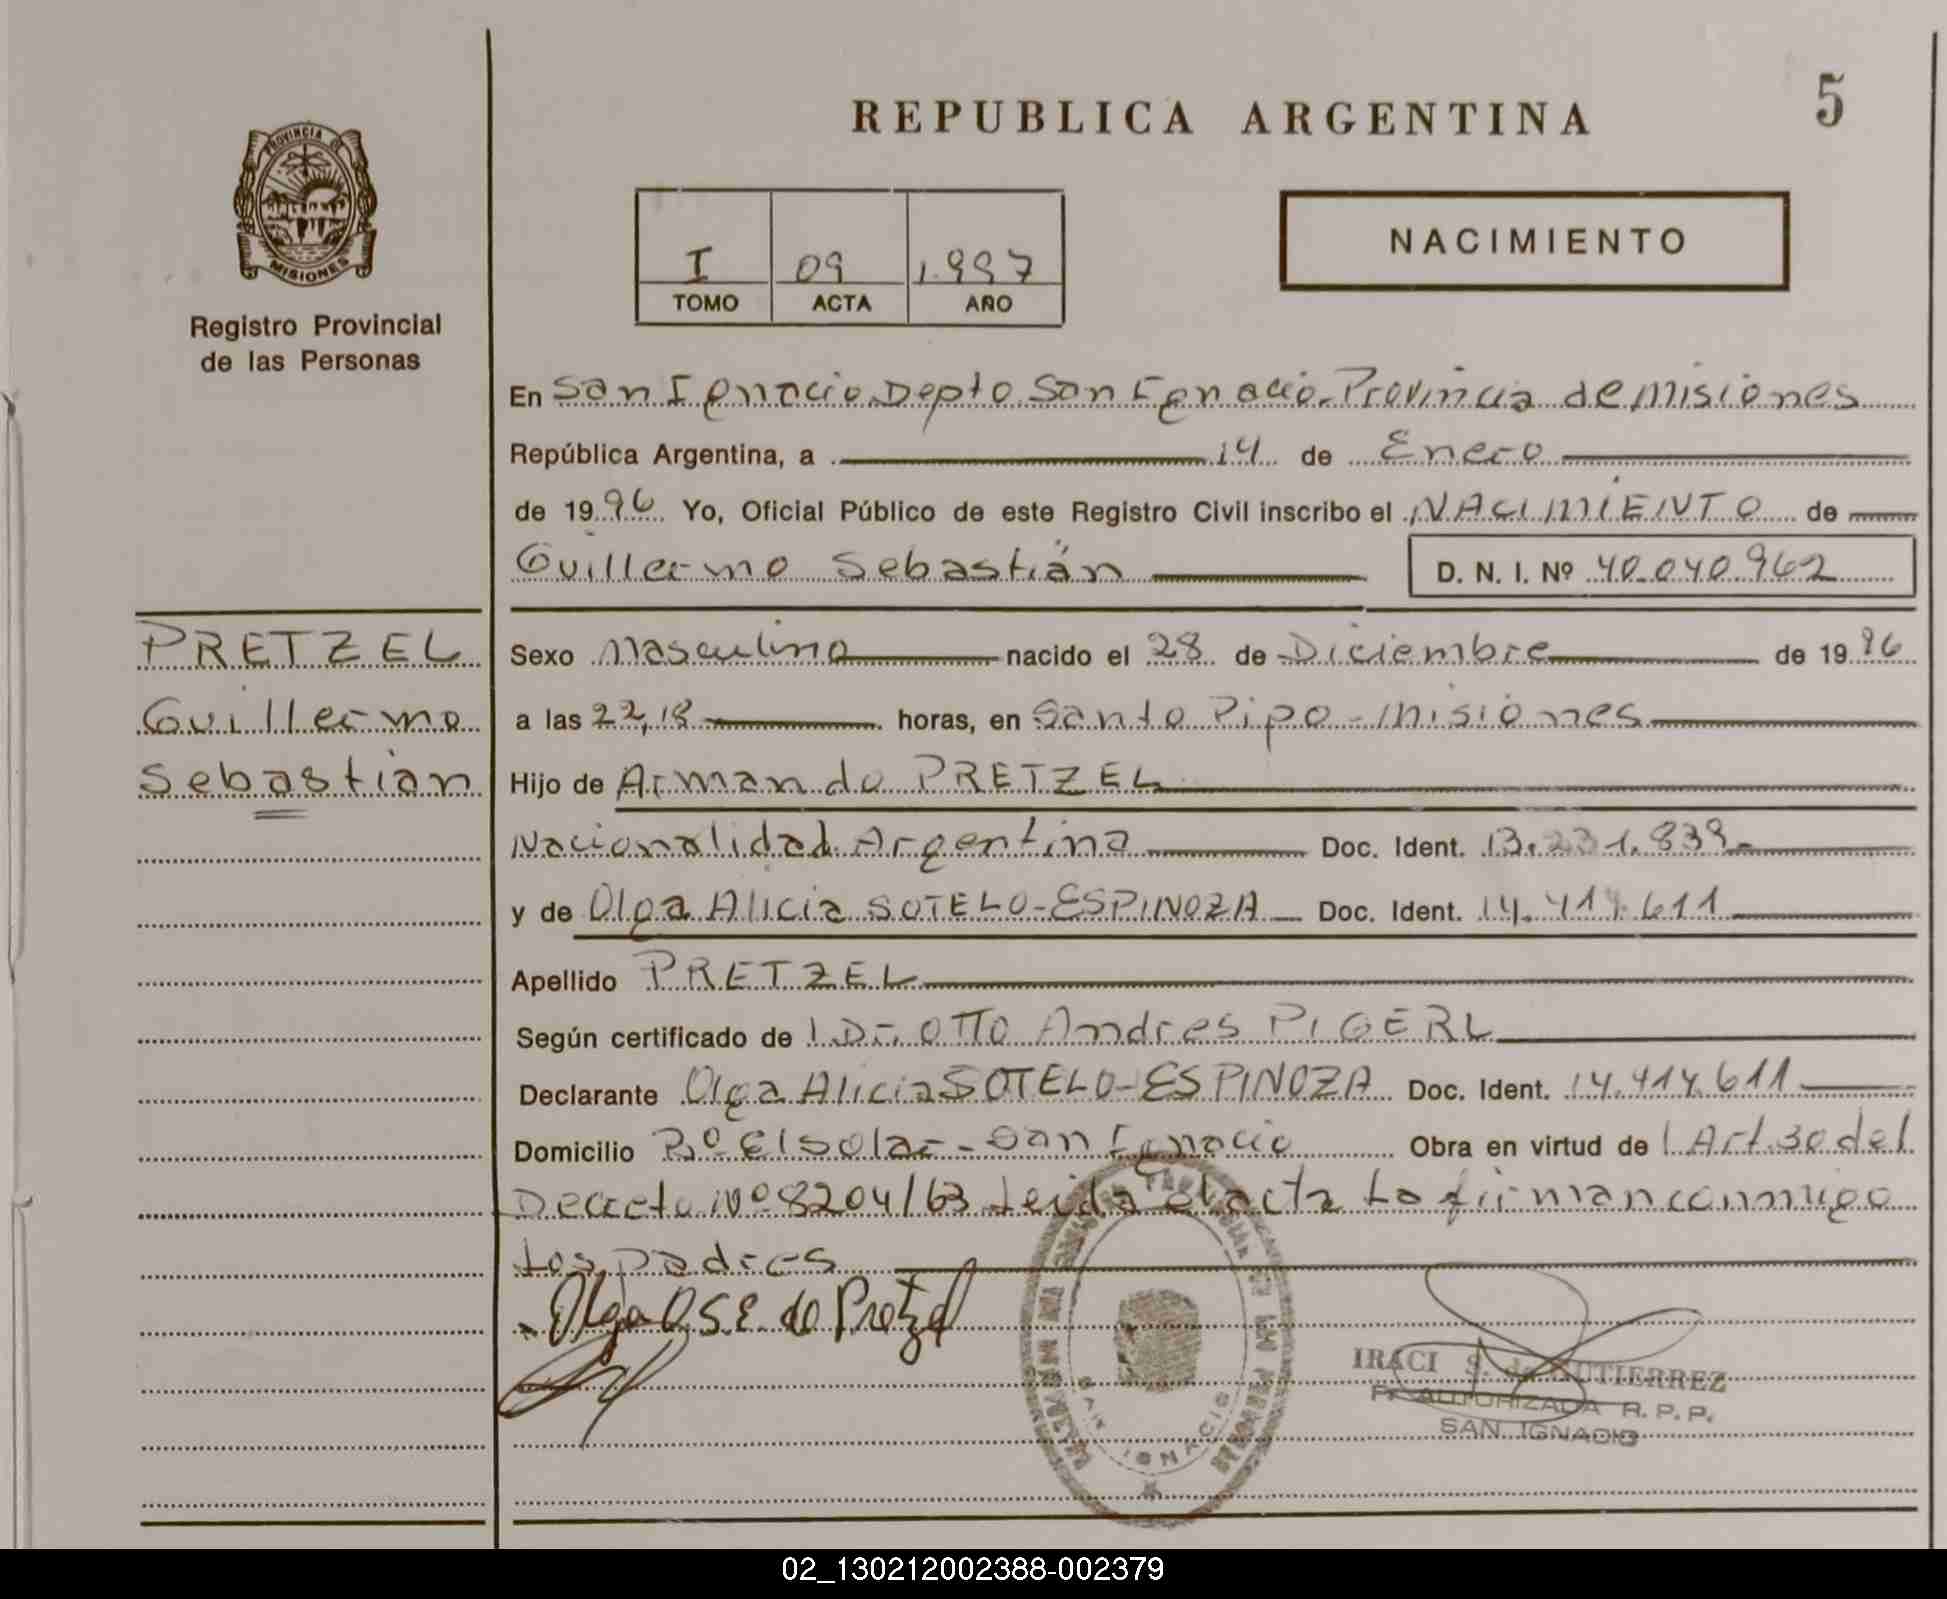 REPUBLICA ARGENTINA
5
PROVINCIA DE
MISIONES
Registro Provincial
de las Personas
I 09 1.997
TOMO ACTA AÑO
NACIMIENTO
En San Ignacio Depto San Ignacio. Provincia de misiones
República Argentina, a 14 de Enero
de 1996 Yo, Oficial Público de este Registro Civil inscribo el NACIMIENTO de
Guillermo Sebastián D. N. I. Nº 40.040.962
PRETZEL
Guillermo
Sebastian
Sexo Masculino nacido el 28 de Diciembre de 1996
a las 22,18 horas, en Santo Pipo - Misiones
Hijo de Armando PRETZEL
Nacionalidad Argentina Doc. Ident. 13.231.839.-
y de Olga Alicia SOTELO-ESPINOZA Doc. Ident. 14.414.611
Apellido PRETZEL
Según certificado de l Dr. OTTO Andres PIGERL
Declarante Olga Alicia SOTELO-ESPINOZA Doc. Ident. 14.414.611
Domicilio Bº El Solar - San Ignacio Obra en virtud de l Art. 30 del
Decreto Nº 8204/63 Leida el acta La firman conmigo
Los padres
Olga A. S. E. de Pretzel
SAN IGNACIO
IRACI S. de GUTIERREZ
AUTORIZADA R. P. P.
SAN IGNACIO
02_130212002388-002379